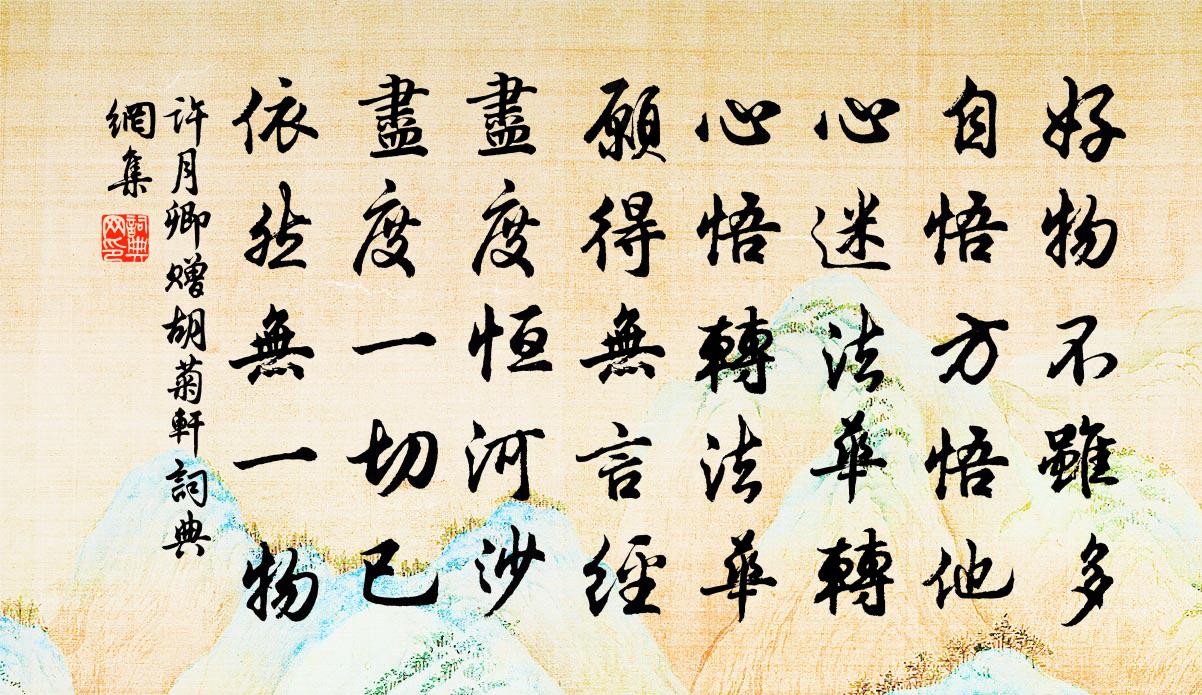 好物不雖多
自悟方悟他
心迷法華轉
心悟轉法華
願得無言經
盡度恒河沙
盡度一切已
依然無一物
許月卿贈胡菊軒詞典
網集
詞典
網印